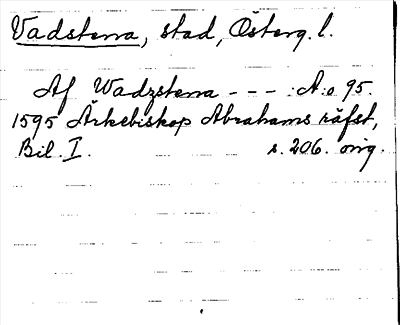 Vadstena, stad, Österg. l.
Af Wadzstena - - - : A:o 95.
1595 Ärkebiskop Abrahams räfst,
Bil. I. s. 206. orig.